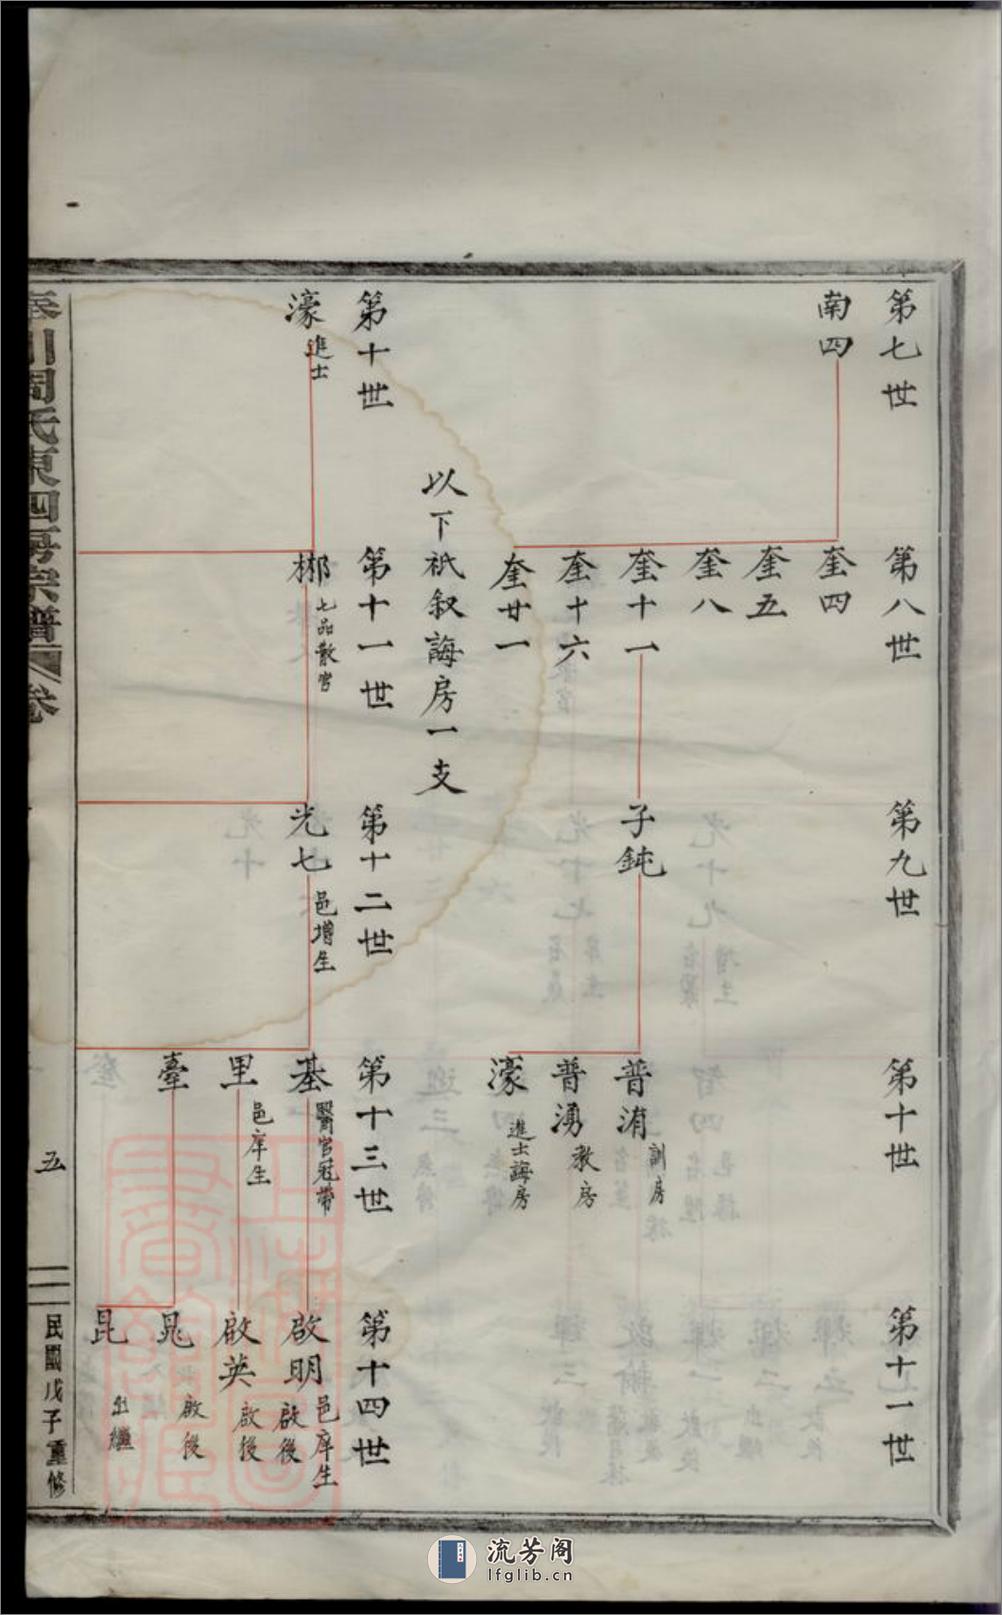 第七世
南四
第八世
奎四
奎五
奎八
奎十一
奎十六
奎廿一
第九世
子鈍
第十世
普洧 訓房
普湧 教房
濠 進士誨房
第十一世
以下祇叙誨房一支
第十世
濠 進士
第十一世
梛 七品散官
第十二世
光七 邑增生
第十三世
基 醫官冠帶
里 邑庠生
臺
第十四世
啟明 邑庠生 啟後
啟英 啟後
晁 啟後
昆 出繼
川周氏東四房宗譜 卷
五
民國戊子重修
流芳阁
lfglib.cn